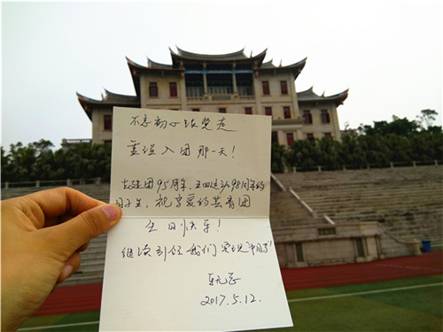 不忘初心跟党走
重温入团那一天!
在建团95周年,五四运动98周年的
日子里,祝亲爱的共青团
生日快乐!
继续引领我们实现"中国梦"
2017.5.12.